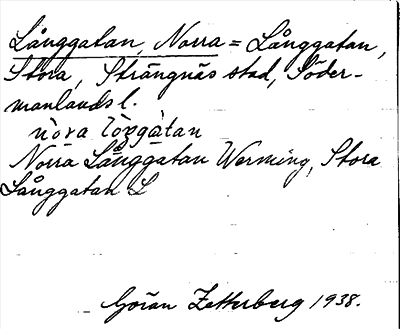 Långgatan, Norra = Långgatan,
Stora, Strängnäs stad, Söder-
manlands l.
nòra låŋgàtan
Norra Långgatan Werming, Stora
Långgatan L
Göran Zetterberg 1938.